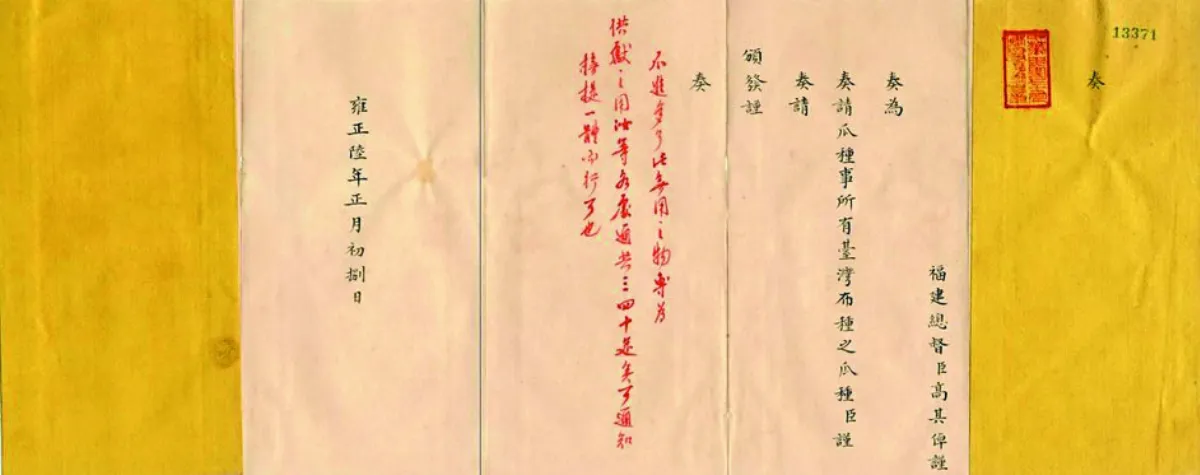 13371
奏
福建總督臣高其倬謹
奏為
奏請瓜種事所有臺灣布種之瓜種臣謹
奏請
頒發謹
奏
不進多了此無用之物專為
供獻之用汝等各處通共三四十足矣可通知
提一體而行可也
雍正陸年正月初捌日